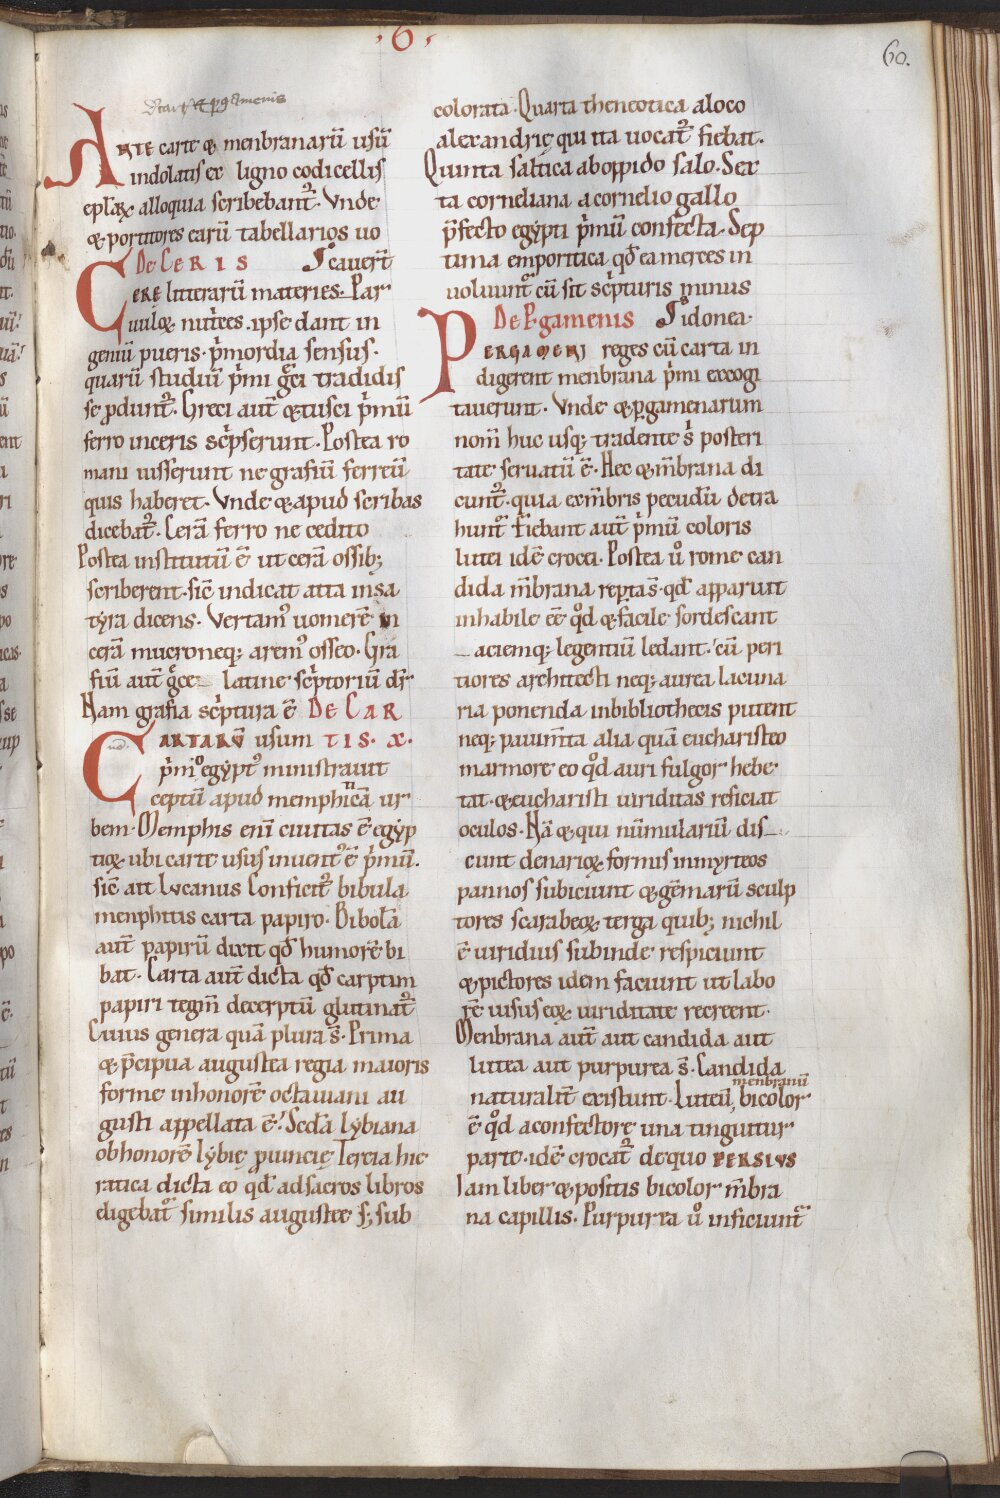 ·6·
60.
ARTE carte & menbranarū usū
indolatis ex ligno codicellis
eplaꝝ alloquia scribebant᷑. Vnde
& portitores earū tabellarios uo
De CERIS Icauer̄t
CERE litterarū materies. Par
uuloꝝ nut̓ces. ipse dant in
geniū pueris. p̓mordia sensus.
quarū studiū p̓mi g̓ci tradidis
se ꝓdunt᷑. Greci aut̄ & tusci p̓mū
ferro inceris sc̓pserunt. Postea ro
mani iusserunt ne grafiū ferreū
quis haberet. Vnde & apud scribas
dicebat᷑. Cerā ferro ne cedito
Postea institutū ē ut cerā ossib;
scriberent. sic̄ indicat atta insa
tyra dicens. Vertam᷒ uomerē in
cerā mucroneq; arem᷒ osseo. Gra
fiū aut̄ g̓ce latine sc̓ptoriū dr̄
Nam grafia sc̓ptura ē De CAR
CARTARŪ usum TIS. X.
p̓mͦ egypt᷒ ministrauit
ceptū apud memphicā ur
bem. Memphis eni̅ ciuitas ē egyp
tioꝝ ubi carte usus inuent᷒ ē p̓mū.
sic̄ ait Lucanus Conficit᷑ bibula
menphitis carta papiro. Bibolā
aut̄ papirū dixit qd̄ humorē bi
bat. Carta aut̄ dicta qd̄ carptim
papiri tegm̄ decerptū glutinat᷑
Cuius genera quā plura s̄. Prima
& p̄cipua augustea regia maioris
forme inhonorē octauiani au
gusti appellata ē. Scdā lybiana
obhonorē lybię ꝓuincię Tercia hie
ratica dicta eo qd̄ adsacros libros
eligebat᷑ similis augustee s; sub
colorata. Quarta theneotica aloco
alexandrię qui ita uocat᷑ fiebat.
Quinta saltica aboppido salo. Sex
ta corneliana a cornelio gallo
p̄fecto egypti p̓mū confecta. Sep
tima emporitica qd̄ ea merces in
uoluunt᷑ cū sit sc̓pturis minus
De Pgamenis Sidonea.
PERGAMENI reges cū carta in
digerent menbrana p̓mi excogi
tauerunt. Vnde & pgamenarum
nom̄ huc usq; tradente s̓ posteri
tate seruatū ē. Hec & m̄brana di
cunt᷑. quia exm̄bris pecudū detra
hunt᷑ Fiebant aut̄ p̓mū coloris
lutei idē crocei. Postea uͦ rome can
dida m̄brana repta s̄. qd̄ apparuit
inhabile ēē qͦd & facile sordescant
aciemq; legentiū ledant. cū peri
tiores architecti neq; aurea lacuna
ria ponenda inbibliothecis putent
neq; pauim̄ta alia quā eucharisteo
marmore eo qͦd auri fulgor hebe
tat. & eucharisti uiriditas reficiat
oculos. Nā & qui nūmulariū dis
cunt denarioꝝ formis inmyrteos
pannos subiciunt & gēmarū sculp
tores scarabeoꝝ terga quib; nichil
ē uiridius subinde respiciunt
& pictores idem faciunt ut labo
rē uisus eoꝝ uiriditate recreent.
Menbrana aut̄ aut candida aut
lutea aut purpurea s̄. Candida
menbranū
naturalit̄ existunt. Luteū, bicolor
ē qͦd aconfectore una tinguitur
parte. idē crocat᷑ de quo PERSIUS
Iam liber & positis bicolor m̄bra
na capillis. Purpurea uͦ inficiunt᷑